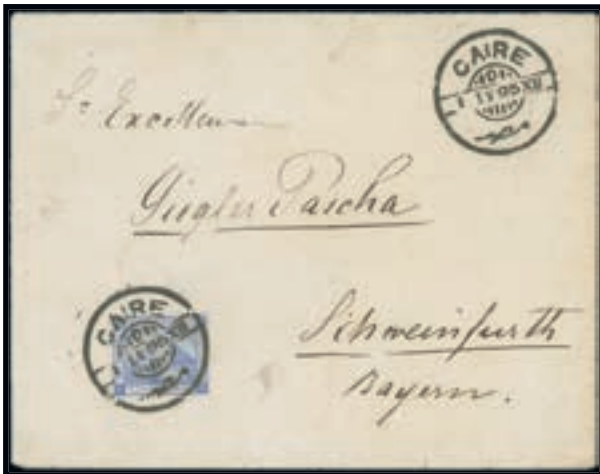 CAIRE
Sr Excellenz
Giegler Pascha
Schweinfurth
Bayern.
CAIRE